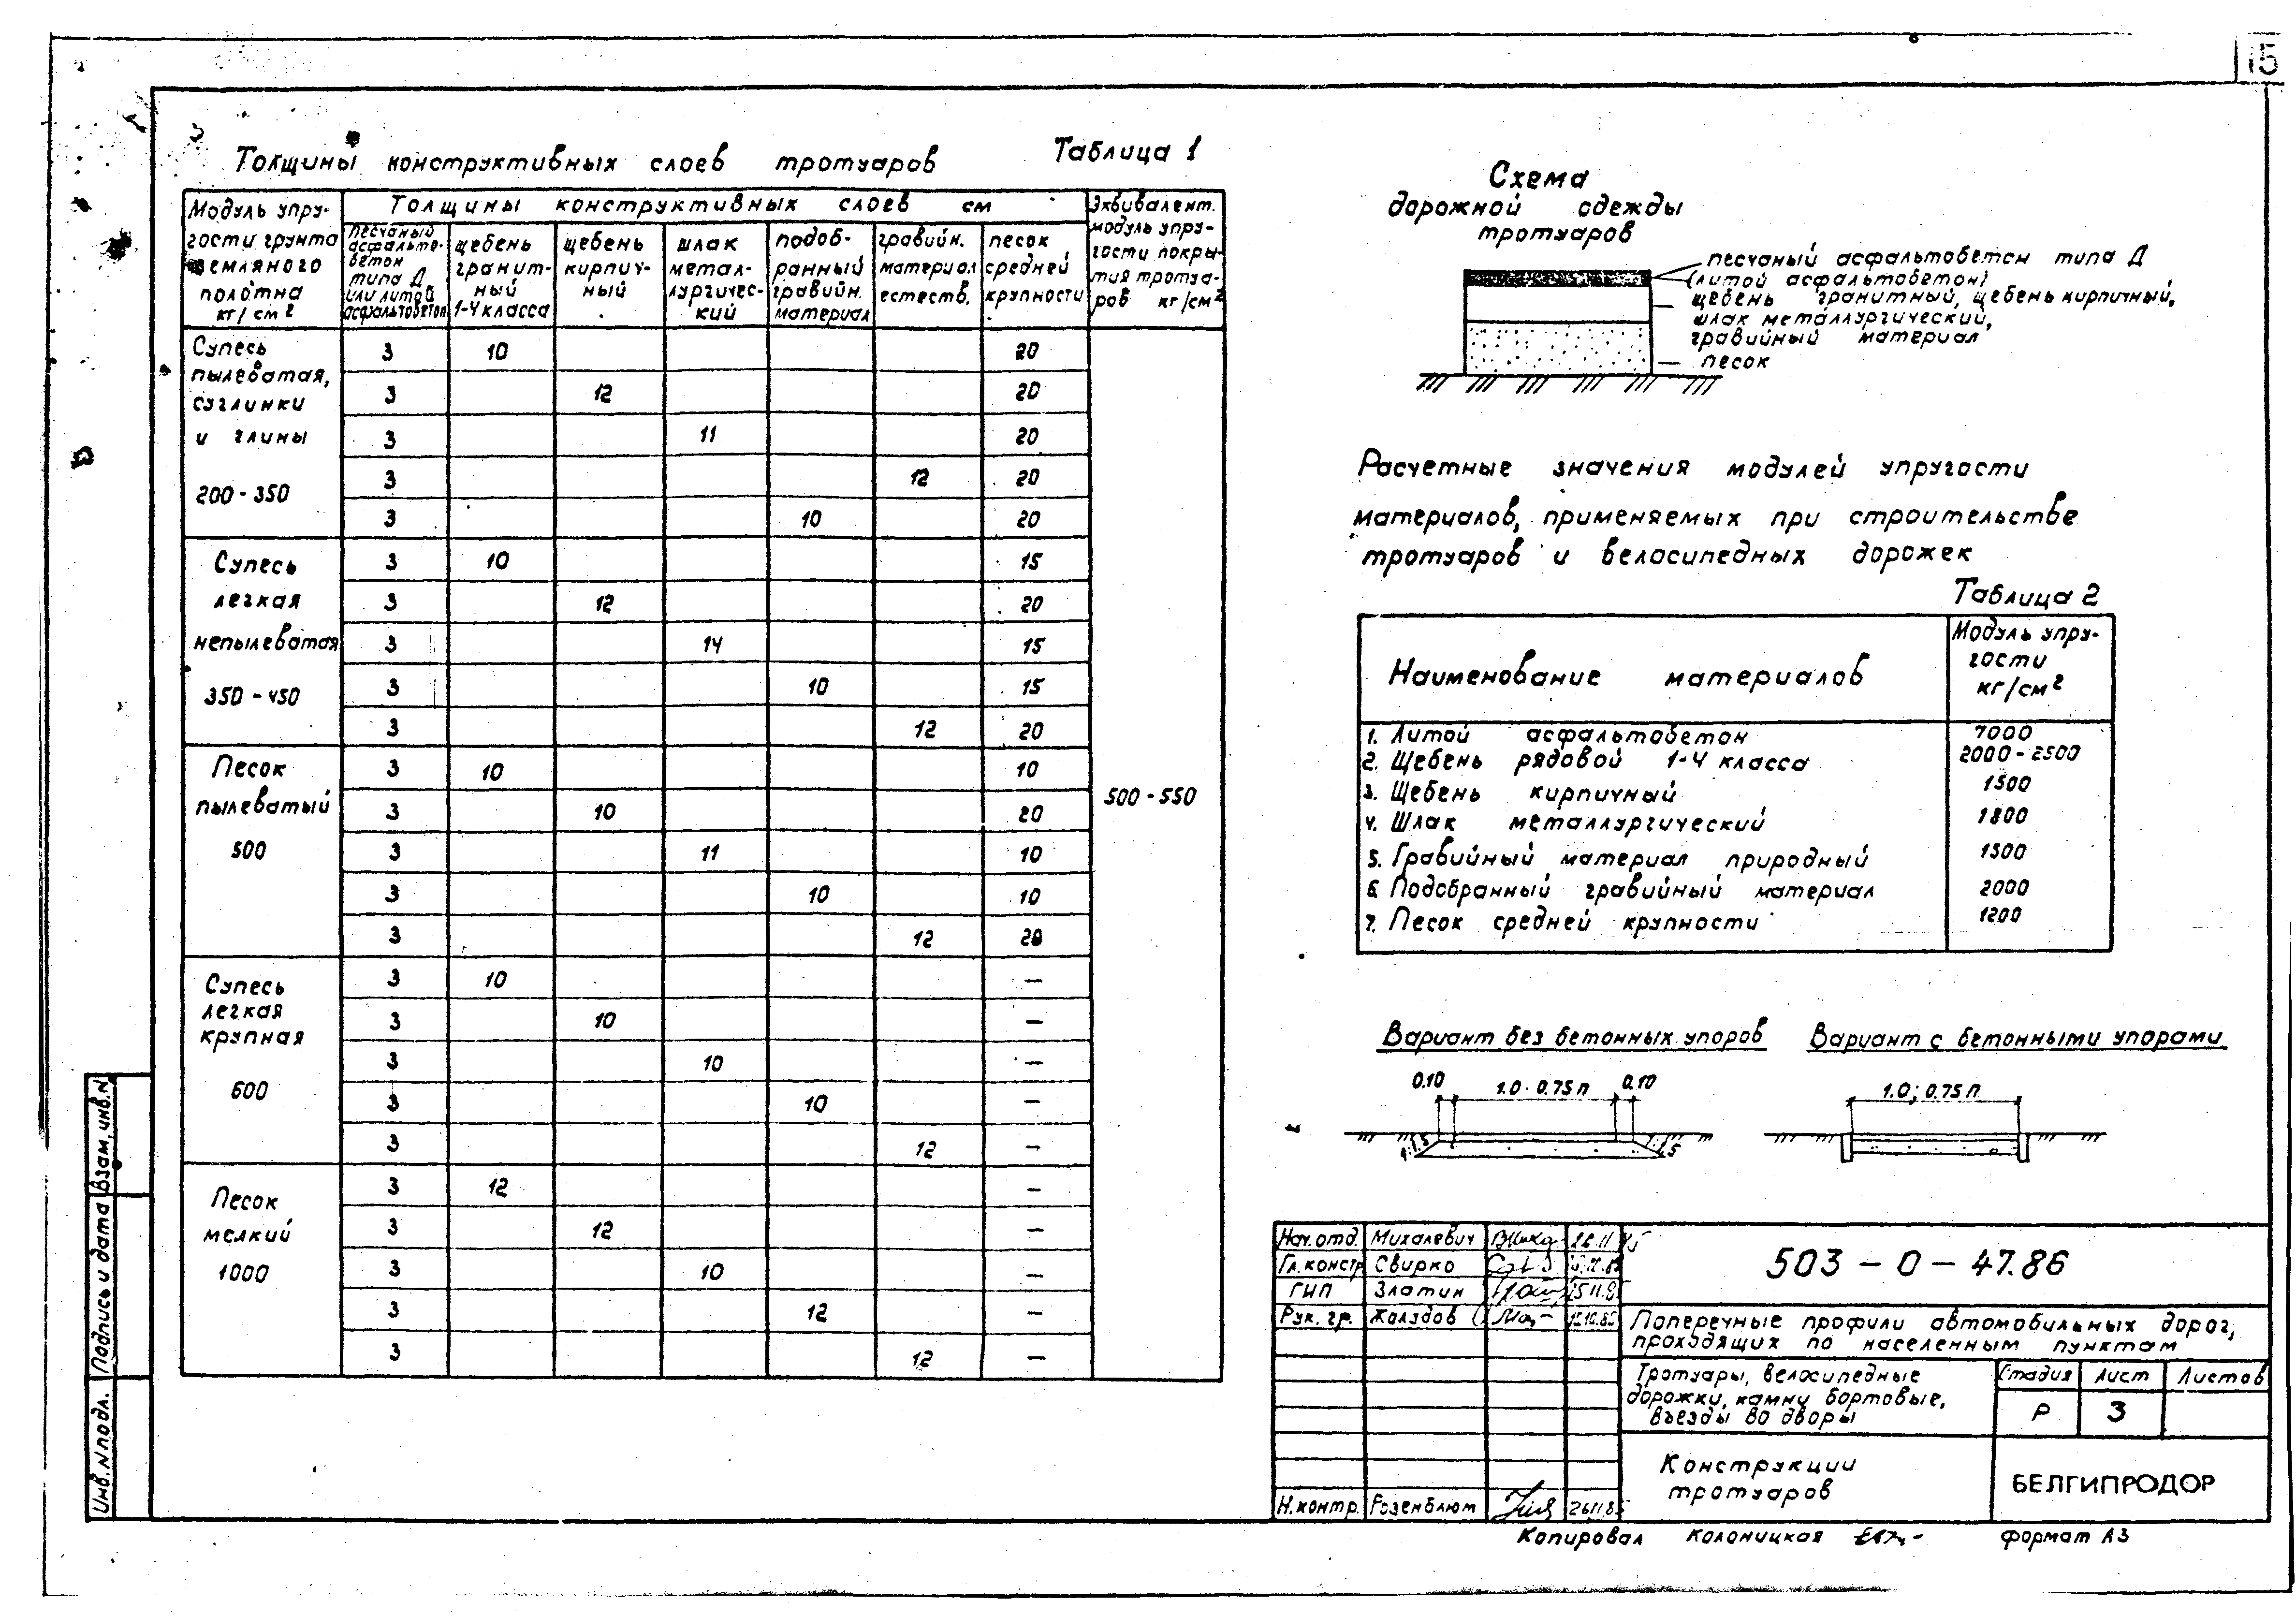 15
Толщины конструктивных слоев тротуаров
Таблица 1
Модуль упру-
гости грунта
земляного
полотна
кг/см²
Толщины конструктивных слоев см
песчаный
асфальто-
бетон
типа Д
или литой
асфальтобетон
щебень
гранит-
ный
1-4 класса
щебень
кирпич-
ный
шлак
метал-
лургичес-
кий
подоб-
ранный
гравийн.
материал
гравийн.
материал
естеств.
песок
средней
крупности
Эквивалент.
модуль упру-
гости покры-
тия тротуа-
ров кг/см²
Супесь
пылеватая,
суглинки
и глины
200-350
3 10 20
3 12 20
3 11 20
3 12 20
3 10 20
Супесь
легкая
непылеватая
350-450
3 10 15
3 12 20
3 14 15
3 10 15
3 12 20
Песок
пылеватый
500
3 10 10
3 10 20
3 11 10
3 10 10
3 12 20
500-550
Супесь
легкая
крупная
600
3 10 —
3 10 —
3 10 —
3 10 —
3 12 —
Песок
мелкий
1000
3 12 —
3 12 —
3 10 —
3 12 —
3 12 —
Схема
дорожной одежды
тротуаров
песчаный асфальтобетон типа Д
(литой асфальтобетон)
щебень гранитный, щебень кирпичный,
шлак металлургический,
гравийный материал
песок
Расчетные значения модулей упругости
материалов, применяемых при строительстве
тротуаров и велосипедных дорожек
Таблица 2
Наименование материалов
Модуль упру-
гости
кг/см²
1. Литой асфальтобетон 7000
2. Щебень рядовой 1-4 класса 2000-2500
3. Щебень кирпичный 1500
4. Шлак металлургический 1800
5. Гравийный материал природный 1500
6. Подобранный гравийный материал 2000
7. Песок средней крупности 1200
Вариант без бетонных упоров
0.10 1.0·0.75 п 0.10
Вариант с бетонными упорами
1.0; 0.75 п
Нач. отд. Михалевич
Гл. констр. Свирко
ГИП Златин
Рук. гр. Жолудов
Н. контр. Розенблюм
503-0-47.86
Поперечные профили автомобильных дорог,
проходящих по населенным пунктам
Тротуары, велосипедные
дорожки, камни бортовые,
въезды во дворы
Стадия Лист Листов
Р 3
Конструкции
тротуаров
БЕЛГИПРОДОР
Копировал Колоницкая формат А3
Взам. инв. N
Подпись и дата
Инв. N подл.